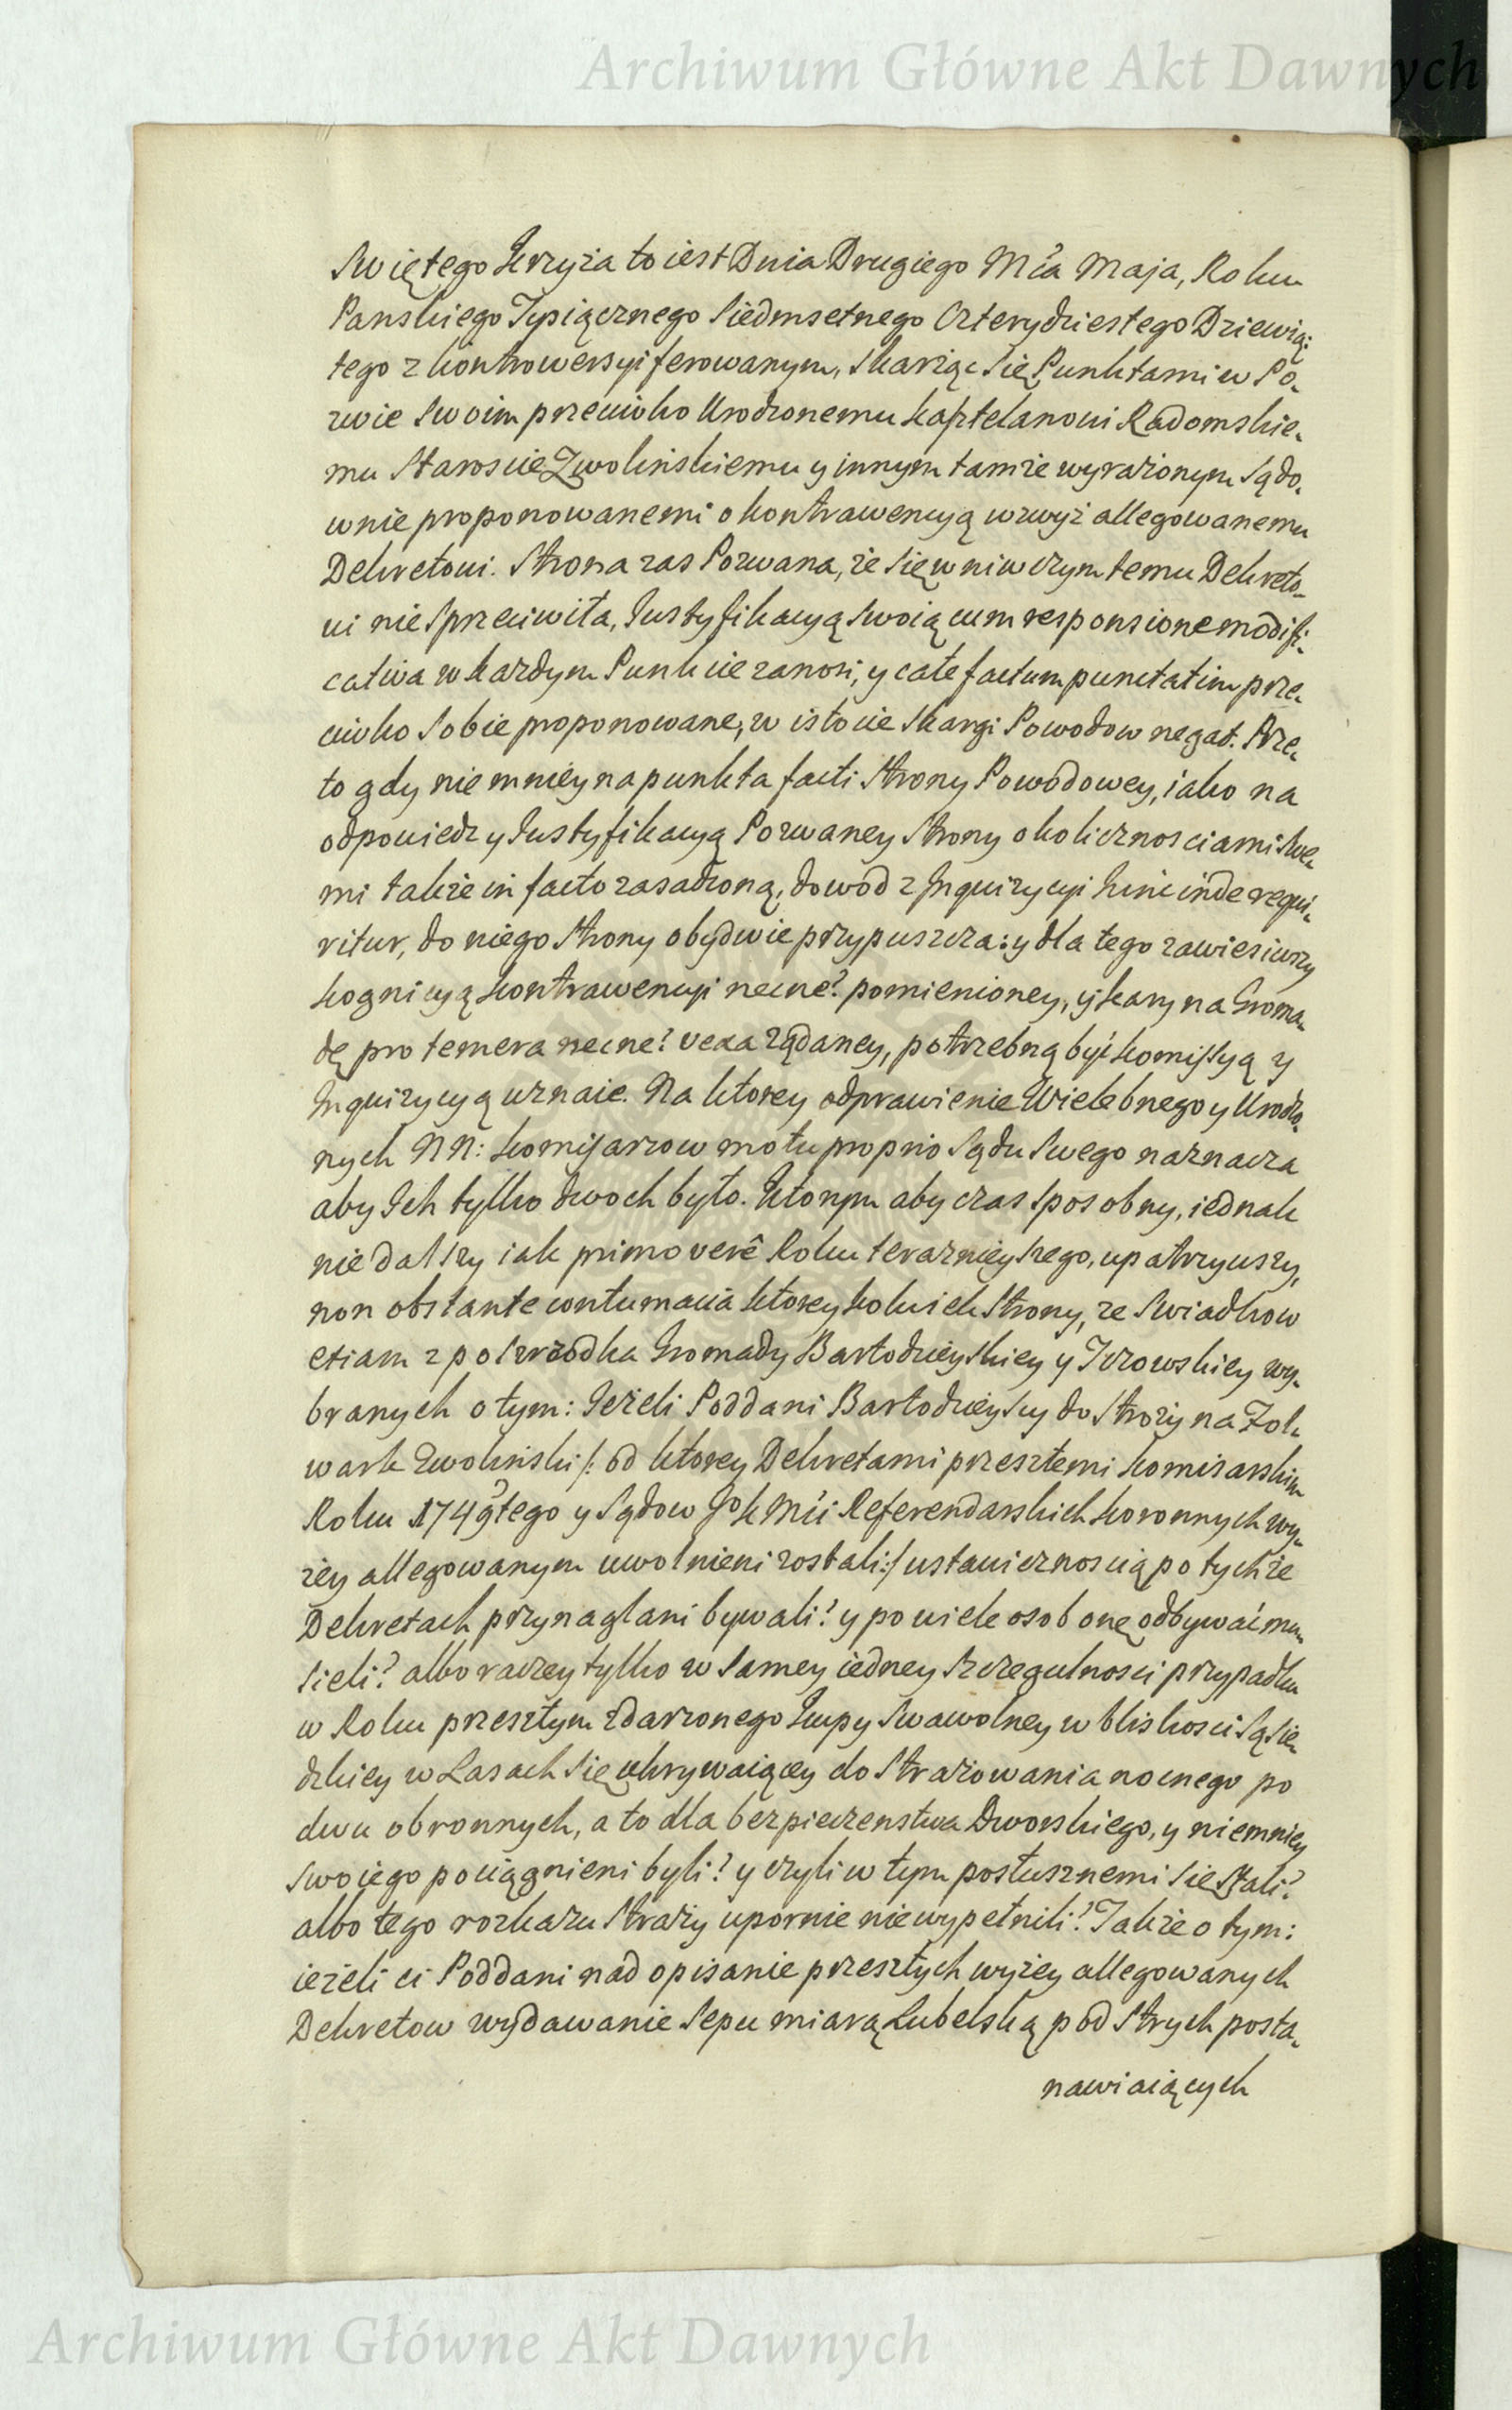 Archiwum Główne Akt Dawnych
Swiętego Krzyża to iest Dnia Drugiego Mca Maja, Roku
Panskiego Tysiącznego Siedmsetnego Czterydziestego Dziewią„
tego z kontrowersyi ferowanym, skarżąc się Punktami w Po„
zwie swoim przeciwko Urodzonemu Kasztelanowi Radomskie„
mu Staroscie Zwolińskiemu y innym tamże wyrażonym sądo„
wnie proponowanemi o kontrawencyą wzwyż allegowanemu
Dekretowi. Strona zas Pozwana, że się w niwczym temu Dekreto„
wi nie sprzeciwiła, Justyfikacyą swoią cum responsione modifi„
cativa w każdym Punkcie zanosi, y całe factum punctatim prze„
ciwko sobie proponowane, w istocie skargi Powodow negat. Prze„
to gdy niemniey na punkta facti Strony Powodowey, iako na
odpowiedz y Justyfikacyą Pozwaney Strony okolicznosciami swe„
mi także in facto zasadzoną, dowod z Inquizycyi hinc inde requi„
ritur, do niego Strony obydwie przypuszcza: y dla tego zawiesiwszy
kognicyą kontrawencyi necne? pomienioney, y kary na Groma„
dę pro temera necne? vexa żądaney, potrzebną być komissyą y
Inquizycyą uznaie. Na ktorey odprawienie Wielebnego y Urodzo„
nych NN: Komisarzow motu proprio Sądu swego naznacza
aby Ich tylko dwoch było. Ktorym aby czas sposobny, iednak
nie dalszy iak primo verê Roku teraznieyszego, upatrzywszy,
non obstante contumacia ktoreykolwiek Strony, ze Swiadkow
etiam z poszrzodka Gromady Bartodzieyskiey y Jczowskiey wy„
branych o tym: Jeżeli Poddani Bartodzieyscy do Stroży na Fol„
wark Zwoliński /: od ktorey Dekretami przeszłemi Komisarskim
Roku 1749tego y Sądow JoKMci Referendarskich Koronnych wy„
żey allegowanym uwolnieni zostali:/ ustawicznoscią po tychże
Dekretach przynaglani bywali? y po wiele osob onę odbywać mu„
sieli? albo raczey tylko w samey iedney szczegulnosci przypadku
w Roku przeszłym zdarzonego kupy swawolney w bliskosci sąsie„
dzkiey w Lasach się ukrywaiącey do strażowania nocnego po
dwu obronnych, a to dla bezpieczenstwa Dworskiego, y niemniey
swoiego pociągnieni byli? y czyli w tym posłusznemi się stali?
albo tego rozkazu straży upornie niewypełnili? Także o tym:
ieżeli ci Poddani nad opisanie przeszłych wyżey allegowanych
Dekretow wydawanie Sepu miarą Lubelską pod strych posta„
nawiaiących
Archiwum Główne Akt Dawnych